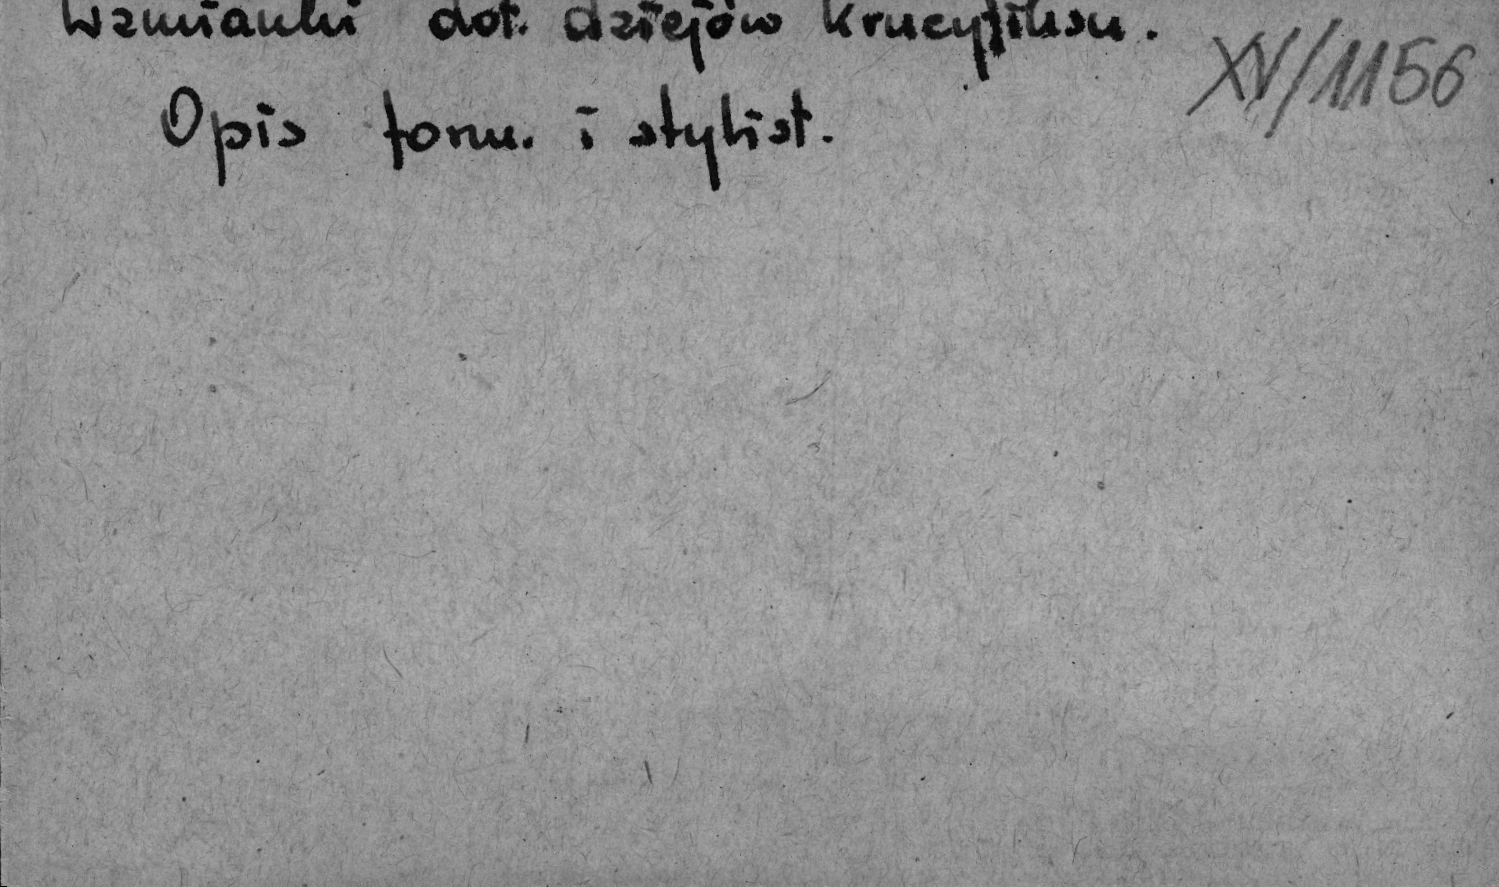 Wzmianki dot. dziejów krucyfiksu.
XV/1156
Opis form. i stylist.